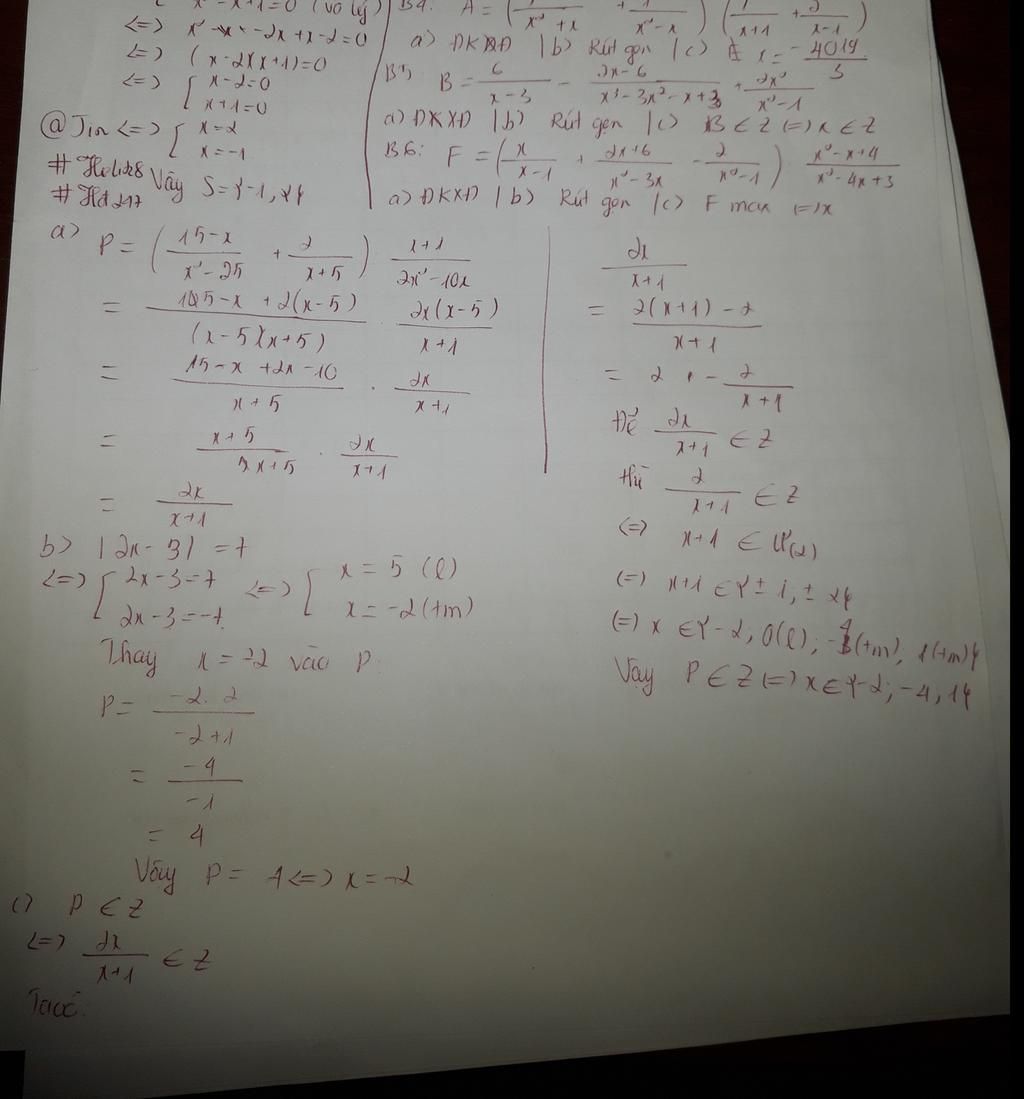 x² - x + 1 = 0 (vô lý)
<=> x² - x - 2x + x - 2 = 0
<=> (x - 2)(x + 1) = 0
<=> [ x - 2 = 0
x + 1 = 0
@ Jin <=> { x = 2
x = -1
Vậy S = {-1, 2}
B4: A =
a) ĐKXĐ | b) Rút gọn | c) A x = -4019/3
B5 B = 6/(x-3) - (2x-6)/(x³-3x²-x+3) + 2x²/(x²-1)
a) ĐKXĐ | b) Rút gọn | c) B ∈ Z <=> x ∈ Z
B6: F = (x/(x-1) + (2x+6)/(x²-3x) - 2/(x²-1)) : (x²-x+4)/(x²-4x+3)
a) ĐKXĐ | b) Rút gọn | c) F max <=> x
a) P = ((15-x)/(x²-25) + 2/(x+5)) (x+1)/(2x²-10x)
= (15-x + 2(x-5))/((x-5)(x+5)) . 2x(x-5)/(x+1)
= (15-x+2x-10)/(x+5) . 2x/(x+1)
= (x+5)/(x+5) . 2x/(x+1)
= 2x/(x+1)
b) |2x - 3| = 7
<=> [ 2x-3=7 <=> [ x = 5 (l)
2x-3=-7 x = -2 (tm)
Thay x = -2 vào P:
P = (-2.2)/(-2+1)
= -4/-1
= 4
Vậy P = 4 <=> x = -2
c) P ∈ Z
<=> 2x/(x+1) ∈ Z
Ta có:
2x/(x+1)
= (2(x+1) - 2)/(x+1)
= 2 - 2/(x+1)
Để 2x/(x+1) ∈ Z
thì 2/(x+1) ∈ Z
<=> x+1 ∈ Ư(2)
<=> x+1 ∈ {±1, ±2}
<=> x ∈ {-2, 0(l); (tm), 1(tm)}
Vậy P ∈ Z <=> x ∈ {-2; -4, 1}